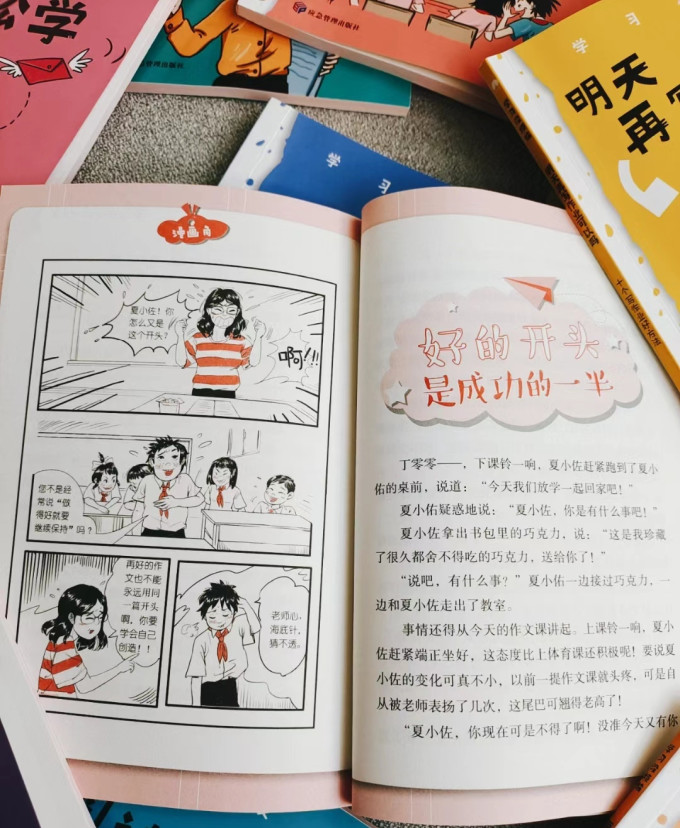 公学
应急管理出版社
应急管理出版社
学习
明天
再
学习
漫画角
夏小佐！你
怎么又是
这个开头？
啊!!!
您不是经
常说“做
得好就要
继续保持”吗？
再好的作
文也不能
永远用同
一篇开头
啊，你要
学会自己
创造！！
老师心，
海底针，
猜不透。
好的开头
是成功的一半
丁零零——，下课铃一响，夏小佐赶紧跑到了夏小
佑的桌前，说道：“今天我们放学一起回家吧！”
夏小佑疑惑地说：“夏小佐，你是有什么事吧！”
夏小佐拿出书包里的巧克力，说：“这是我珍藏
了很久都舍不得吃的巧克力，送给你了！”
“说吧，有什么事？”夏小佑一边接过巧克力，一
边和夏小佐走出了教室。
事情还得从今天的作文课讲起。上课铃一响，夏小
佐赶紧端正坐好，这态度比上体育课还积极呢！要说夏
小佐的变化可真不小，以前一提作文课就头疼，可是自
从被老师表扬了几次，这尾巴可翘得老高了！
“夏小佐，你现在可是不得了啊！没准今天又有你